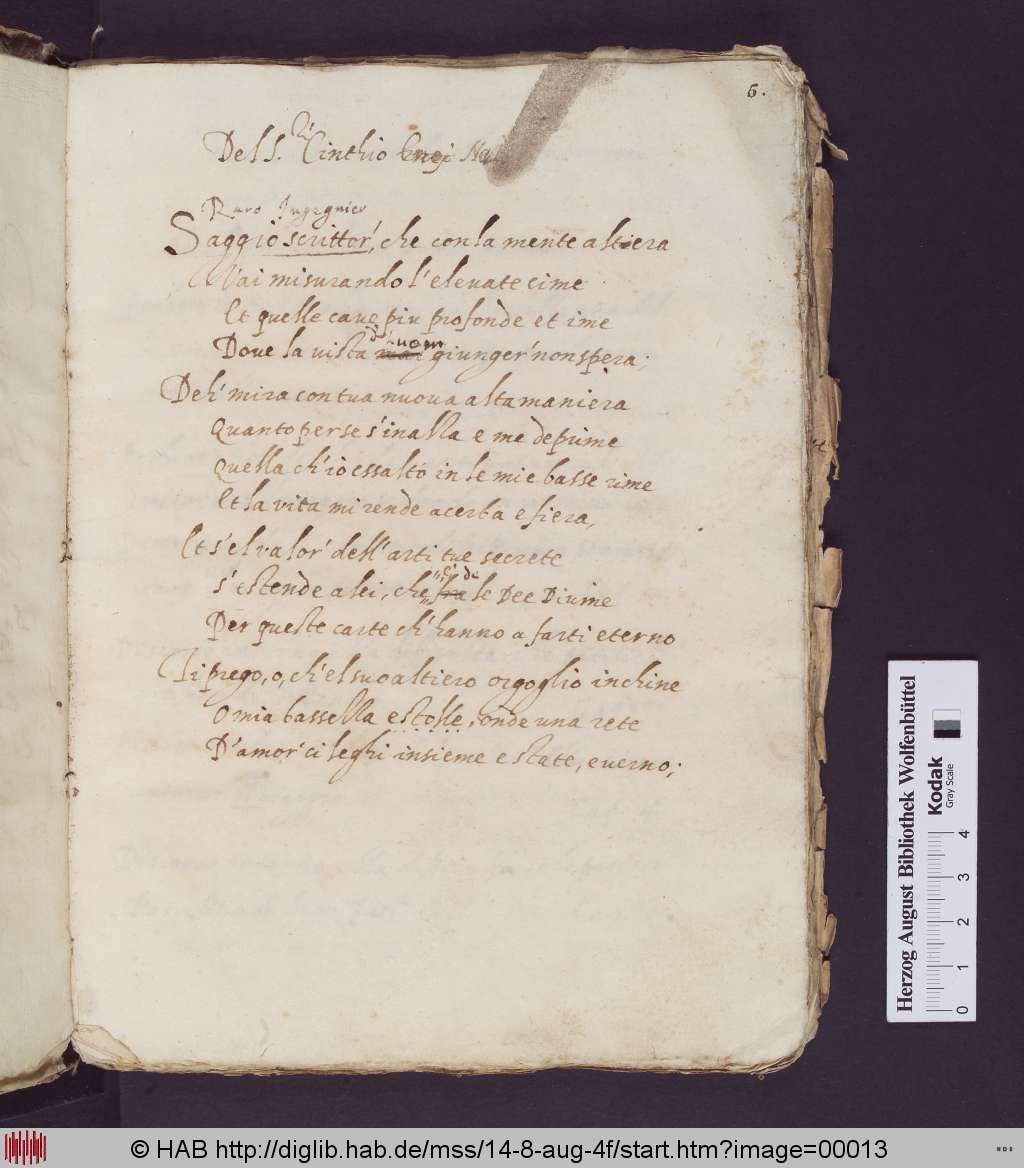 6.
Del S.ri Cinthio
Raro Ingegnier
Saggio scrittor', che con la mente altiera
Vai misurando l'elevate cime
Et quelle cave piu profonde et ime
d'huom
Dove la vista mai giunger' non spera;
Deh' mira con tua nuova alta maniera
Quanto per se s'inalla e me deprime
Quella ch'io essalto in le mie basse rime
Et la vita mi rende acerba e fiera,
Et s'el valor' dell'arti tue secrete
ci de
s'estende a lei, che fra le Dee Divine
Per queste carte ch'hanno a farti eterno
Ti prego, o, ch'el suo altiero orgoglio inchine
O mia bassella estolle, onde una rete
D'amor' ci leghi insieme e state, e verno;
Herzog August Bibliothek Wolfenbüttel
Kodak
Gray Scale
0 1 2 3 4
© HAB http://diglib.hab.de/mss/14-8-aug-4f/start.htm?image=00013